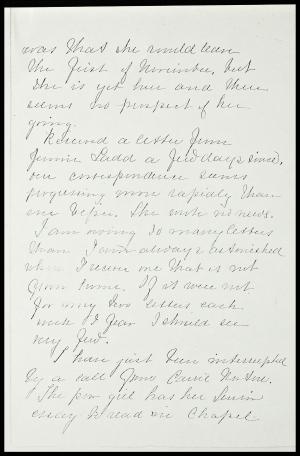 was that she would leave
the first of November, but
she is yet here and there
seems no prospect of her
going.
Received a letter from
Jennie Ladd a few days since,
our correspondence seems
progressing more rapidly than
ever before. She wrote no news.
I am owing so many letters
that I am always astonished
when I receive one that is not
from home. If it were not
for my two letters each
week I fear I should see
very few.
I have just been interrupted
by a call from Carrie
The poor girl has her Senior
essay to read in Chapel